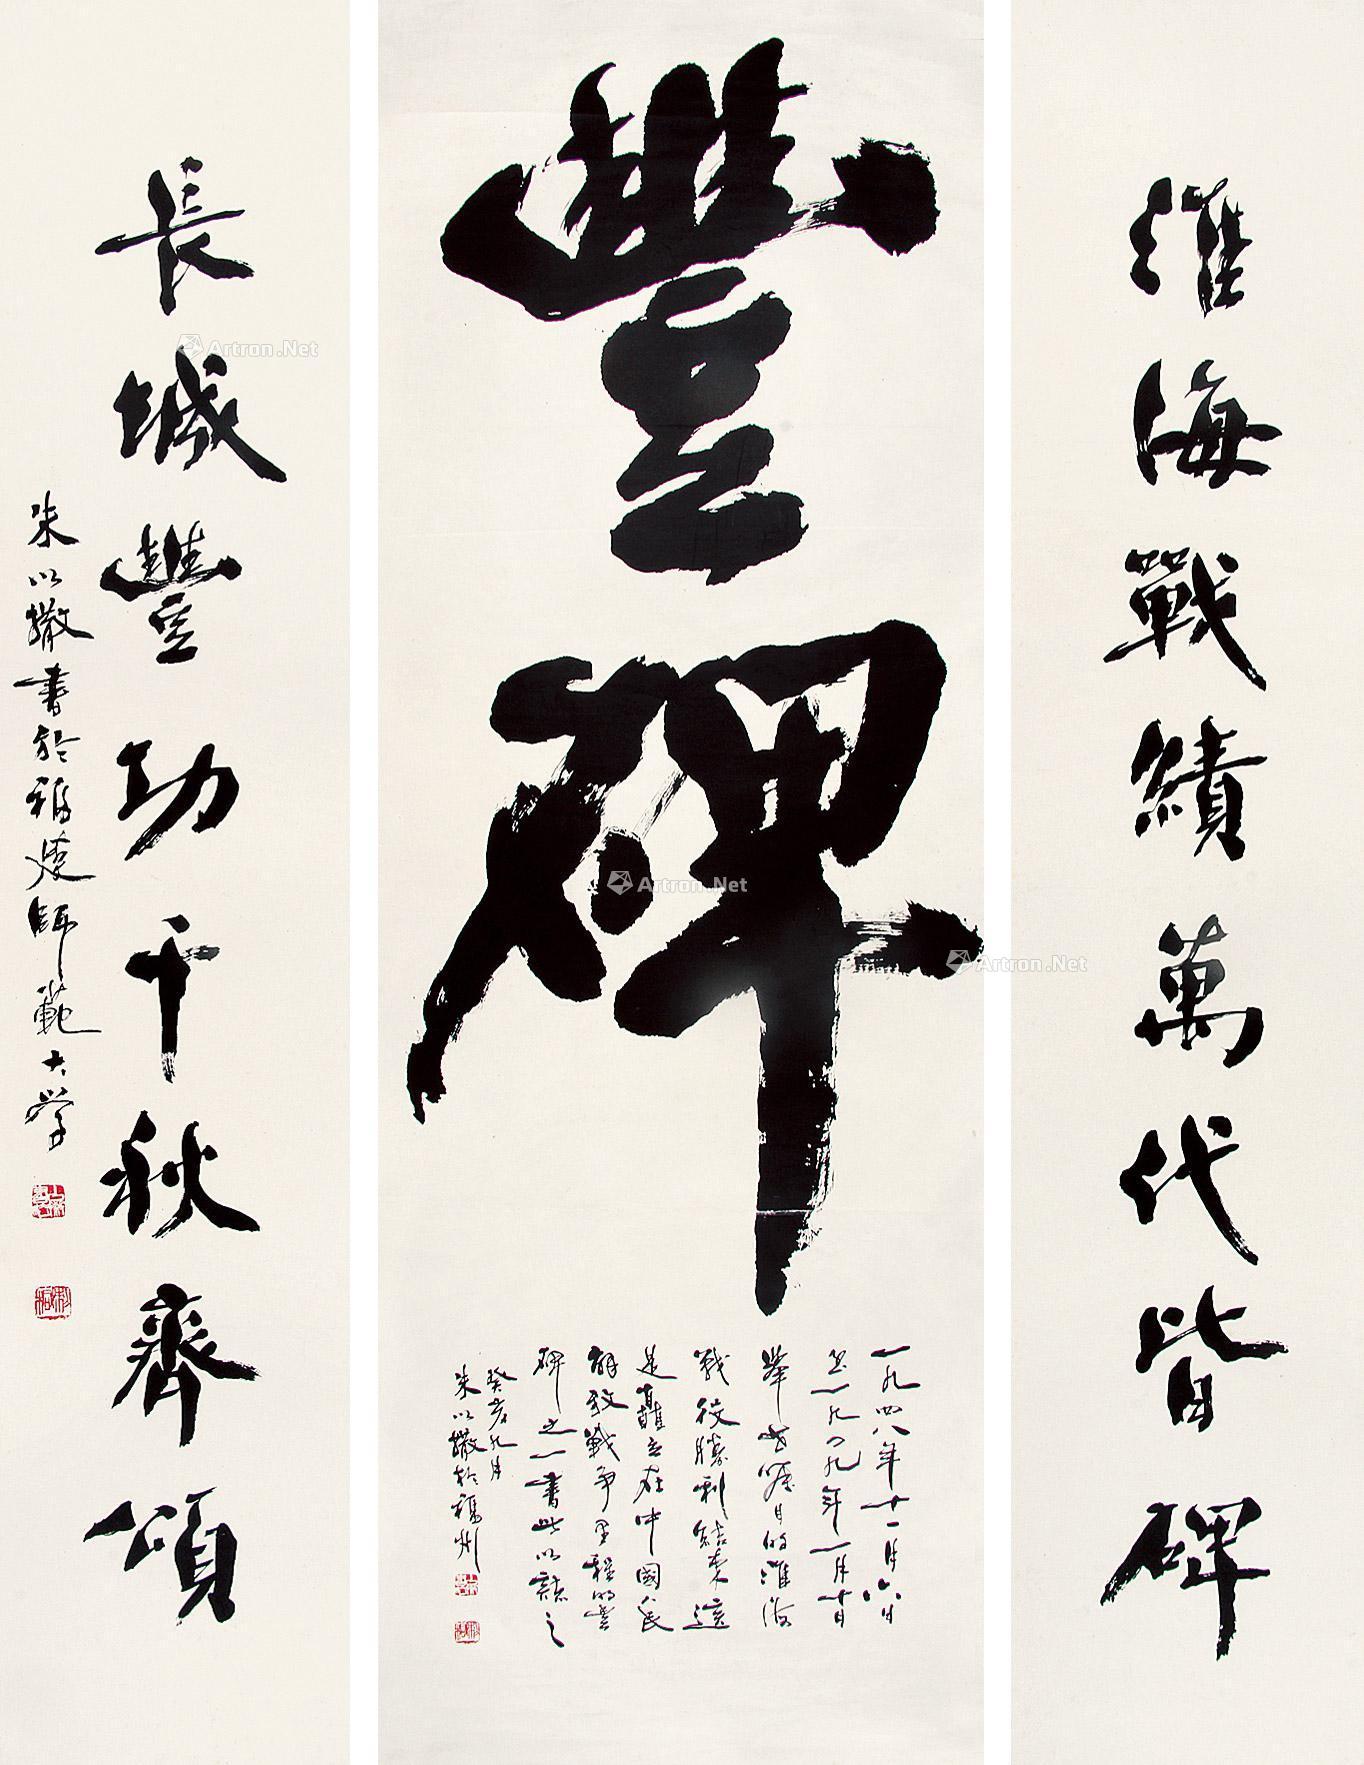 淮海戰績萬代皆碑
豐碑
一九四八年十一月六日
至一九四九年一月十日
舉世矚目的淮海
戰役勝利結束這
是矗立在中國人民
解放戰爭里程的豐
碑之一書此以誌之
癸亥九月
朱以撒於福州
長城豐功千秋齊頌
朱以撒書於福建師範大學
Artron.Net
Artron.Net
Artron.Net